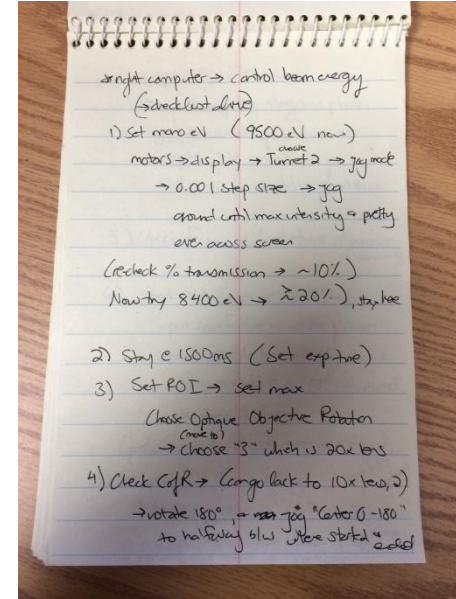 * right computer → control beam energy
(→ check list above)
1) Set mono eV (9500 eV now)
motors → display → choose Turret 2 → jog mode
→ 0.001 step size → jog
around until max intensity & pretty
even across screen
(recheck % transmission → ~10%)
Now try 8400 eV → ≥20%), stay here
2) Stay @ 1500ms (Set exp time)
3) Set ROI → set max
Choose Optique Objective Rotation
(move to)
→ choose "3" which is 20x lens
4) Check CofR → (can go back to 10x lens, 2)
→ rotate 180°, jog "Center 0-180"
to halfway b/w where started & ended